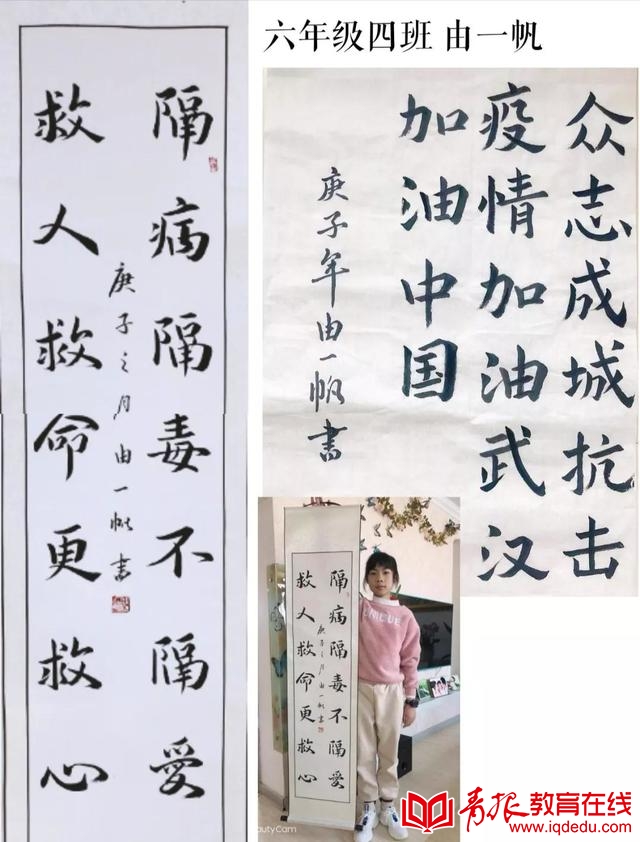 六年级四班 由一帆
隔病隔毒不隔爱
救人救命更救心
庚子之月由一帆书
众志成城抗击
疫情加油武汉
加油中国
庚子年由一帆书
隔病隔毒不隔爱
救人救命更救心
庚子之月由一帆书
UNIQUE
BeautyCam
青报教育在线
www.iqdedu.com